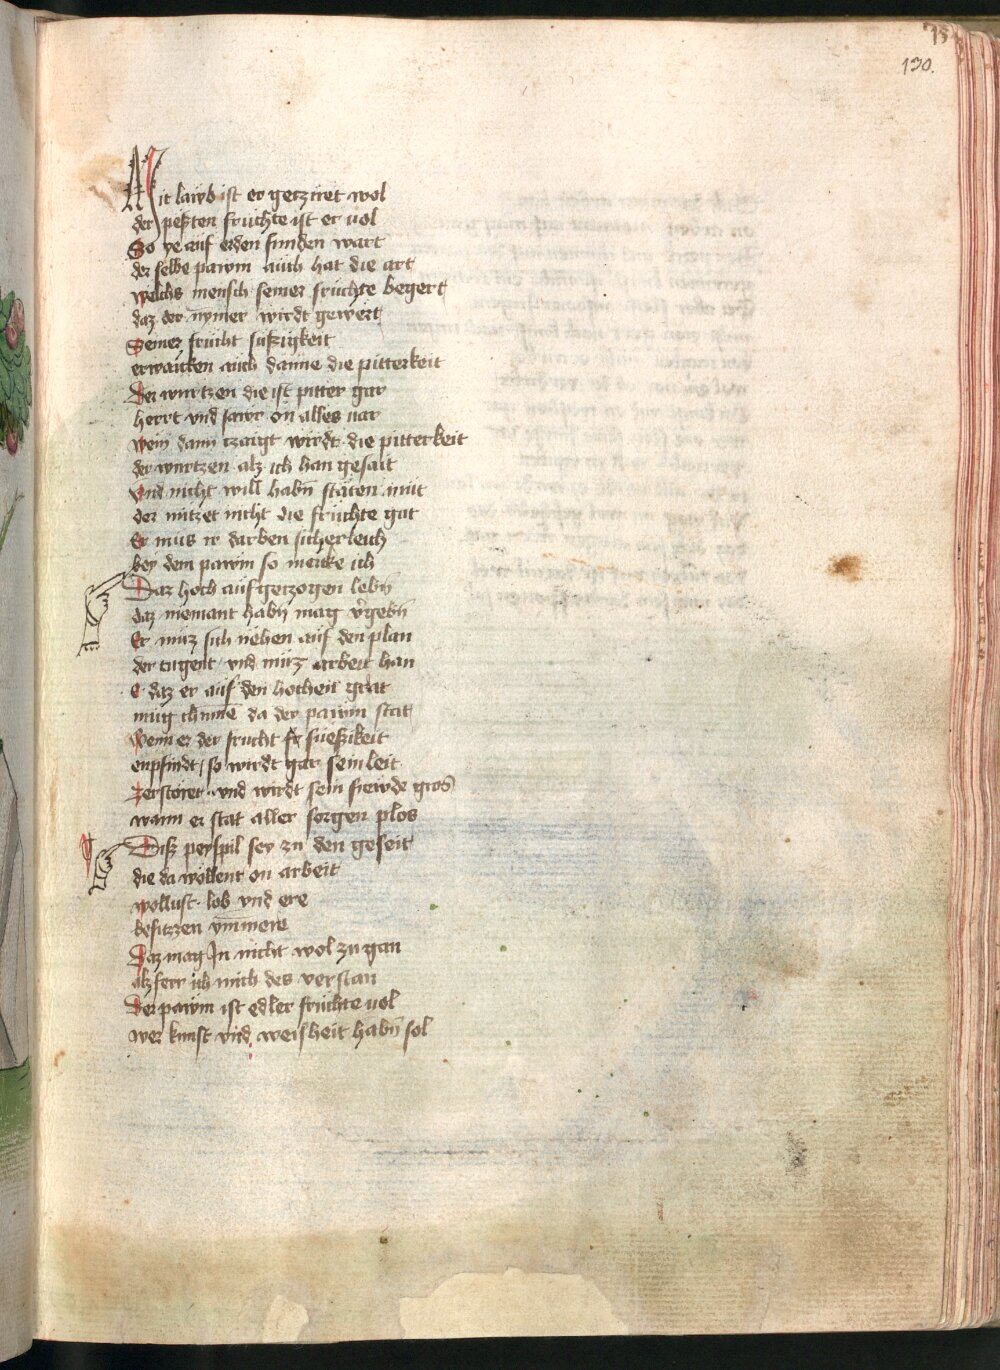 75
130.
Mit lawb ist er getziret wol
der pesten fruchte ist er uol
So ye auf erden funden wart
der selbe pawm auch hat die art
welchs mensch seiner fruchte begert
daz der nymer wirdt gewert
Seiner frucht sußigkeit
erwaichen auch danne die pitterkeit
Der wurtzen die ist pitter gar
herrt vnd sawr on alles uar
wem dann tzaigt wirdt die pitterkeit
der wurtzen alz ich han gesait
vnd nicht will habn̄ stäten mut
der nützet nicht die fruchte gut
Er mus ir darben sicherleich
bey dem pawm so mercke ich
Daz hoch aufgetzogen lebn̄
daz niemant habn̄ mag v̾gebn̄
Er muz sich nehen auf den plan
der tugent vnd muz arbeit han
e daz er auf den hochen grat
mug chumē da der pawm stat
wenn er der frucht sueßikeit
enpfindt / so wirdt gar sein leit
Zerstoret vnd wirdt sein frewde gros
wann er stat aller sorgen plos
Diß peyspil sey zu den geseit
die da wöllent on arbeit
wollust lob vnd ere
besitzen ymmere
Daz mag In nicht wol zu gan
alz ferr ich mich des verstan
Der pawm ist edler fruchte uol
wer kunst vnd weisheit habn̄ sol